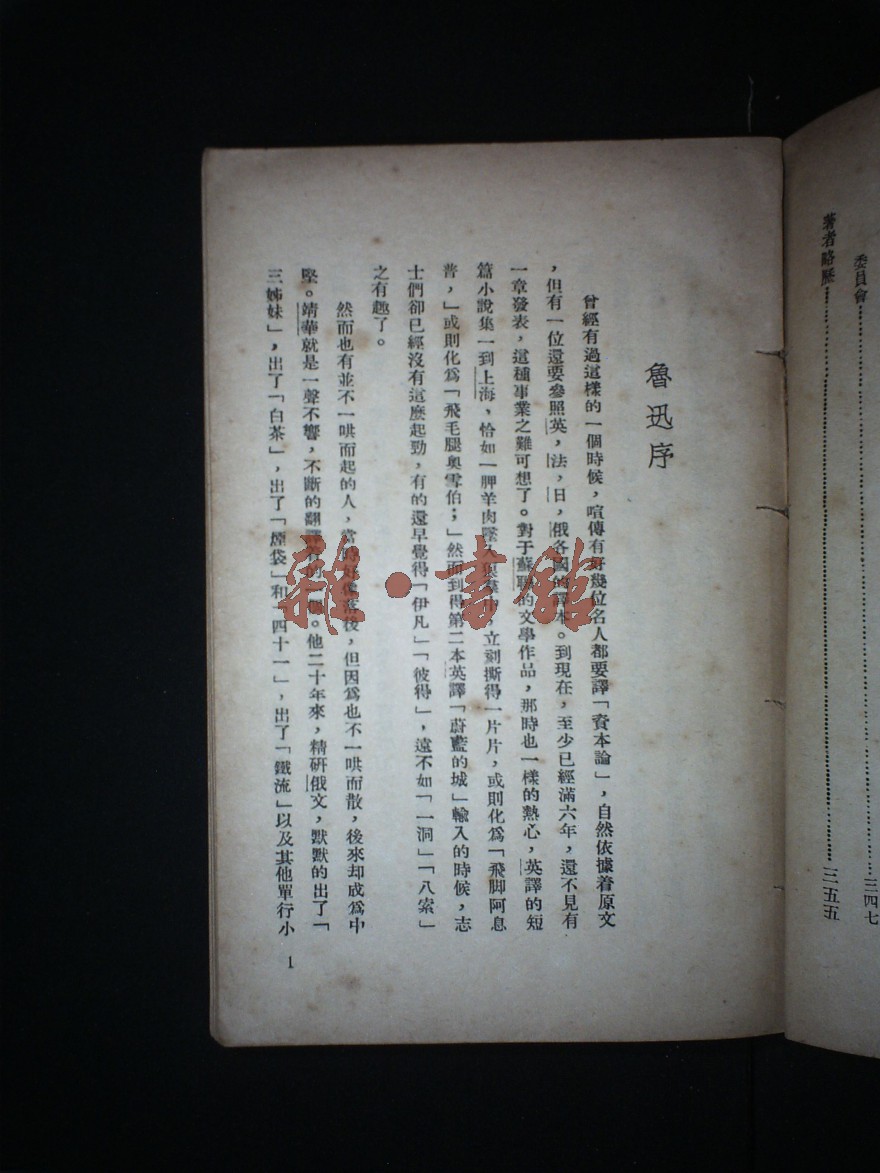 委員會……三四七
著者略歷……三五五
魯迅序
曾經有過這樣的一個時候，喧傳有好幾位名人都要譯「資本論」，自然依據着原文
，但有一位還要參照英，法，日，俄各國的譯本。到現在，至少已經滿六年，還不見有
一章發表，這種事業之難可想了。對于蘇聯的文學作品，那時也一樣的熱心，英譯的短
篇小說集一到上海，恰如一胛羊肉墜入狼羣中，立刻撕得一片片，或則化爲「飛脚阿息
普，」或則化爲「飛毛腿奧雪伯；」然而到得第二本英譯「蔚藍的城」輸入的時候，志
士們卻已經沒有這麽起勁，有的還早覺得「伊凡」「彼得」，遠不如「一洞」「八索」
之有趣了。
然而也有並不一哄而起的人，當時好像落後，但因爲也不一哄而散，後來却成爲中
堅。靖華就是一聲不響，不斷的翻譯着的一個。他二十年來，精研俄文，默默的出了「
三姊妹」，出了「白茶」，出了「煙袋」和「四十一」，出了「鐵流」以及其他單行小
1
雜·書館